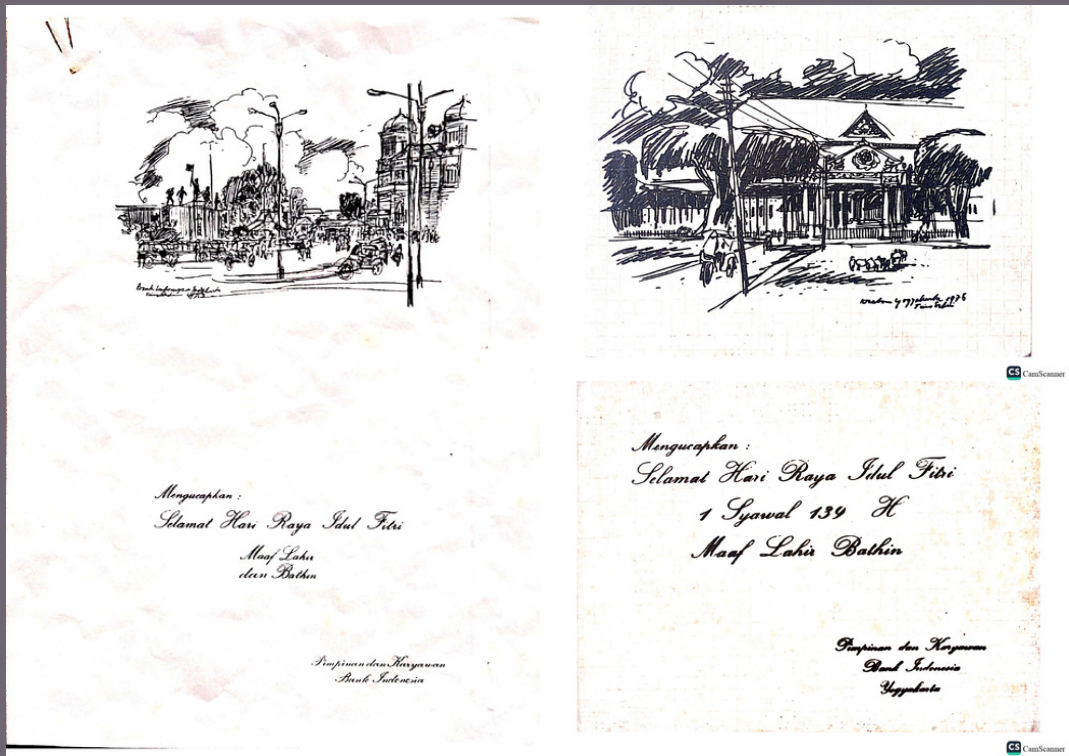 Bank Indonesia
Mengucapkan :
Selamat Hari Raya Idul Fitri
Maaf Lahir
dan Bathin
Pimpinan dan Karyawan
Bank Indonesia
Kraton Yogyakarta 1976
CS CamScanner
Mengucapkan :
Selamat Hari Raya Idul Fitri
1 Syawal 139 H
Maaf Lahir Bathin
Pimpinan dan Karyawan
Bank Indonesia
Yogyakarta
CS CamScanner